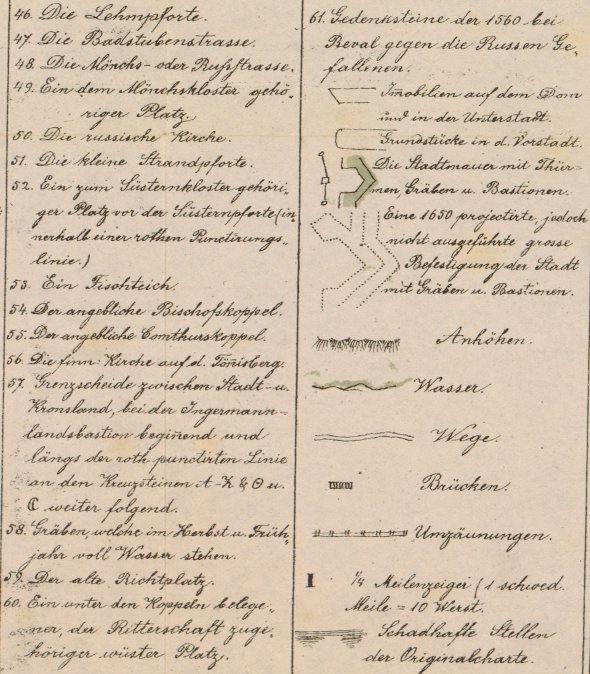 46. Die Lehmpforte.
47. Die Badstubenstrasse.
48. Die Mönchs- oder Rußstrasse.
49. Ein dem Mönchskloster gehö-
riger Platz.
50. Die russische Kirche.
51. Die kleine Strandpforte.
52. Ein zum Süsternkloster gehöri-
ger Platz vor der Süsternpforte (in-
nerhalb einer rothen Punctirungs-
linie.)
53. Ein Fischteich.
54. Der angebliche Bischofskoppel.
55. Der angebliche Comthurskoppel.
56. Die finn: Kirche auf d. Tönisberg.
57. Grenzscheide zwischen Stadt- u.
Kronsland, bei der Ingermann-
landsbastion beginend und
längs der roth punctirten Linie
an den Kreuzsteinen A - K & O u.
C weiter folgend.
58. Gräben, welche im Herbst u. Früh-
jahr voll Wasser stehen.
59. Der alte Richtplatz.
60. Ein unter den Koppeln belege-
ner, der Ritterschaft zuge-
höriger wüster Platz.
61. Gedenksteine der 1560 bei
Reval gegen die Russen Ge-
fallenen.
Imobilien auf dem Dom
und in der Unterstadt.
Grundstücke in d. Vorstadt.
Die Stadtmauer mit Thür-
men, Gräben u. Bastionen.
Eine 1650 projectirte, jedoch
nicht ausgeführte grosse
Befestigung der Stadt
mit Gräben u. Bastionen.
Anhöhen.
Wasser.
Wege.
Brücken.
Umzäunungen.
1/4 Meilenzeiger (1 schwed.
Meile = 10 Werst.
Schadhafte Stellen
der Originalcharte.